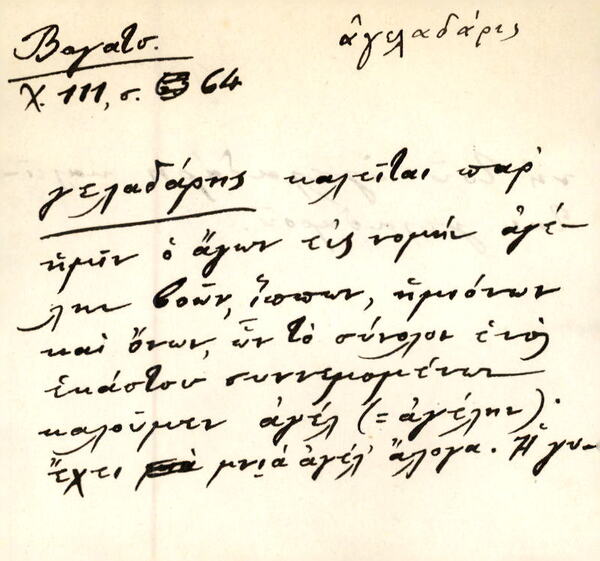 Βογατσ.
ἀγελαδάρις
Χ. 111, σ. 64
γελαδάρης καλεῖται παρ'
ἡμῖν ὁ ἄγων εἰς νομὴν ἀγέ-
λην βοῶν, ἵππων, ἡμιόνων
καὶ ὄνων, ὧν τὸ σύνολον ἑνὸς
ἑκάστου συννεμομένων
καλοῦμεν ἀγέλ (= ἀγέλην).
ἔχει μνιὰ ἀγέλ' ἄλογα. Ἡ γυ-